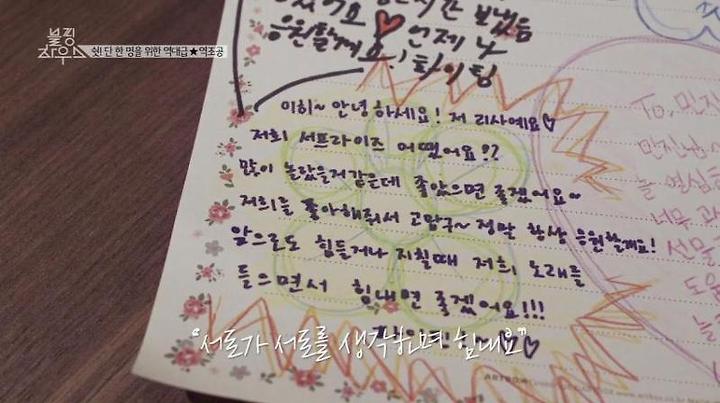 블핑
하우스
쉿! 단 한 명을 위한 역대급★역조공
보냈음
응원할게요! 언제나
화이팅
이히~ 안녕하세요! 저 리사예요♡
저희 서프라이즈 어땠어요??
많이 놀랐을거같은데 좋았으면 좋겠어요~
저희를 좋아해줘서 고맙구~ 정말 항상 응원할게요!
앞으로도 힘들거나 지칠때 저희 노래를
들으면서 힘내면 좋겠어요!!!
"서로가 서로를 생각하며 힘내요"
To. 민진
늘
선물
도움
늘